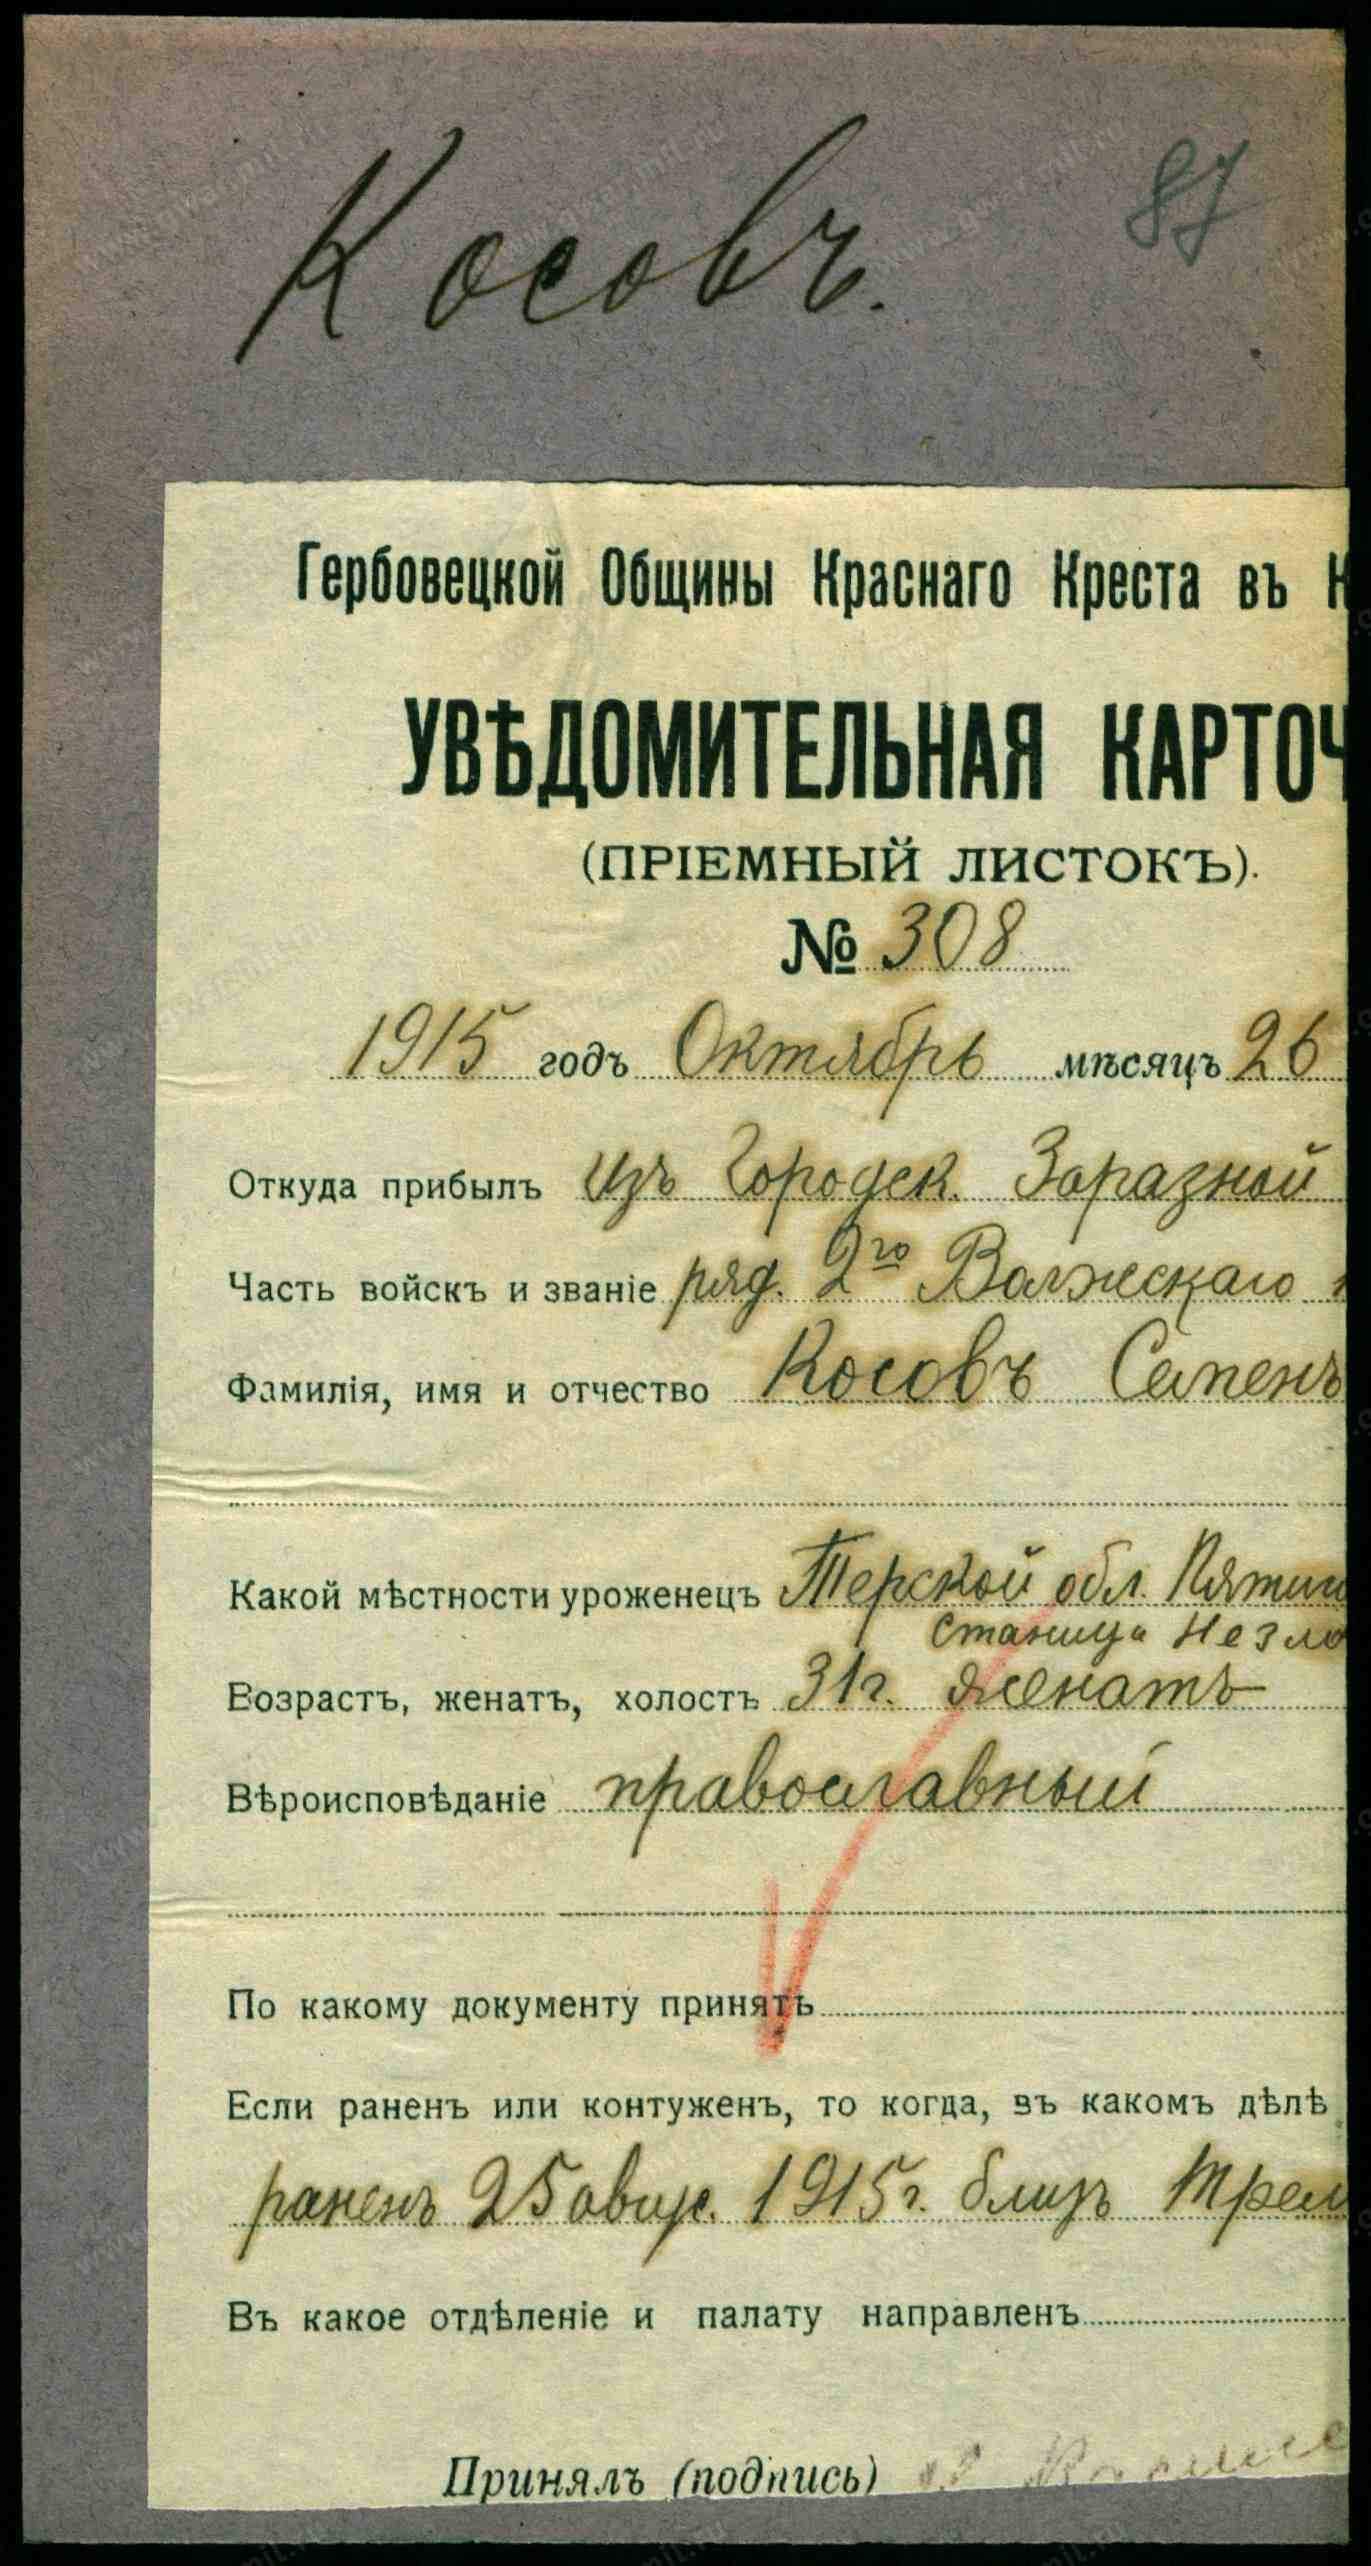 87
Косовъ.
Гербовецкой Общины Краснаго Креста въ К
УВѢДОМИТЕЛЬНАЯ КАРТОЧ
(ПРІЕМНЫЙ ЛИСТОКЪ).
№ 308
1915 годъ Октябрь мѣсяцъ 26
Откуда прибылъ изъ Городск. Заразной
Часть войскъ и званіе ряд. 2го Волжскаго
Фамилія, имя и отчество Косовъ Семенъ
Какой мѣстности уроженецъ Терской обл. Пятиго
станица Незло
Возрастъ, женатъ, холостъ 31г. женатъ
Вѣроисповѣданіе православный
По какому документу принятъ
Если раненъ или контуженъ, то когда, въ какомъ дѣлѣ
раненъ 25 авгус. 1915г. близъ Трем
Въ какое отдѣленіе и палату направленъ
Принялъ (подпись)